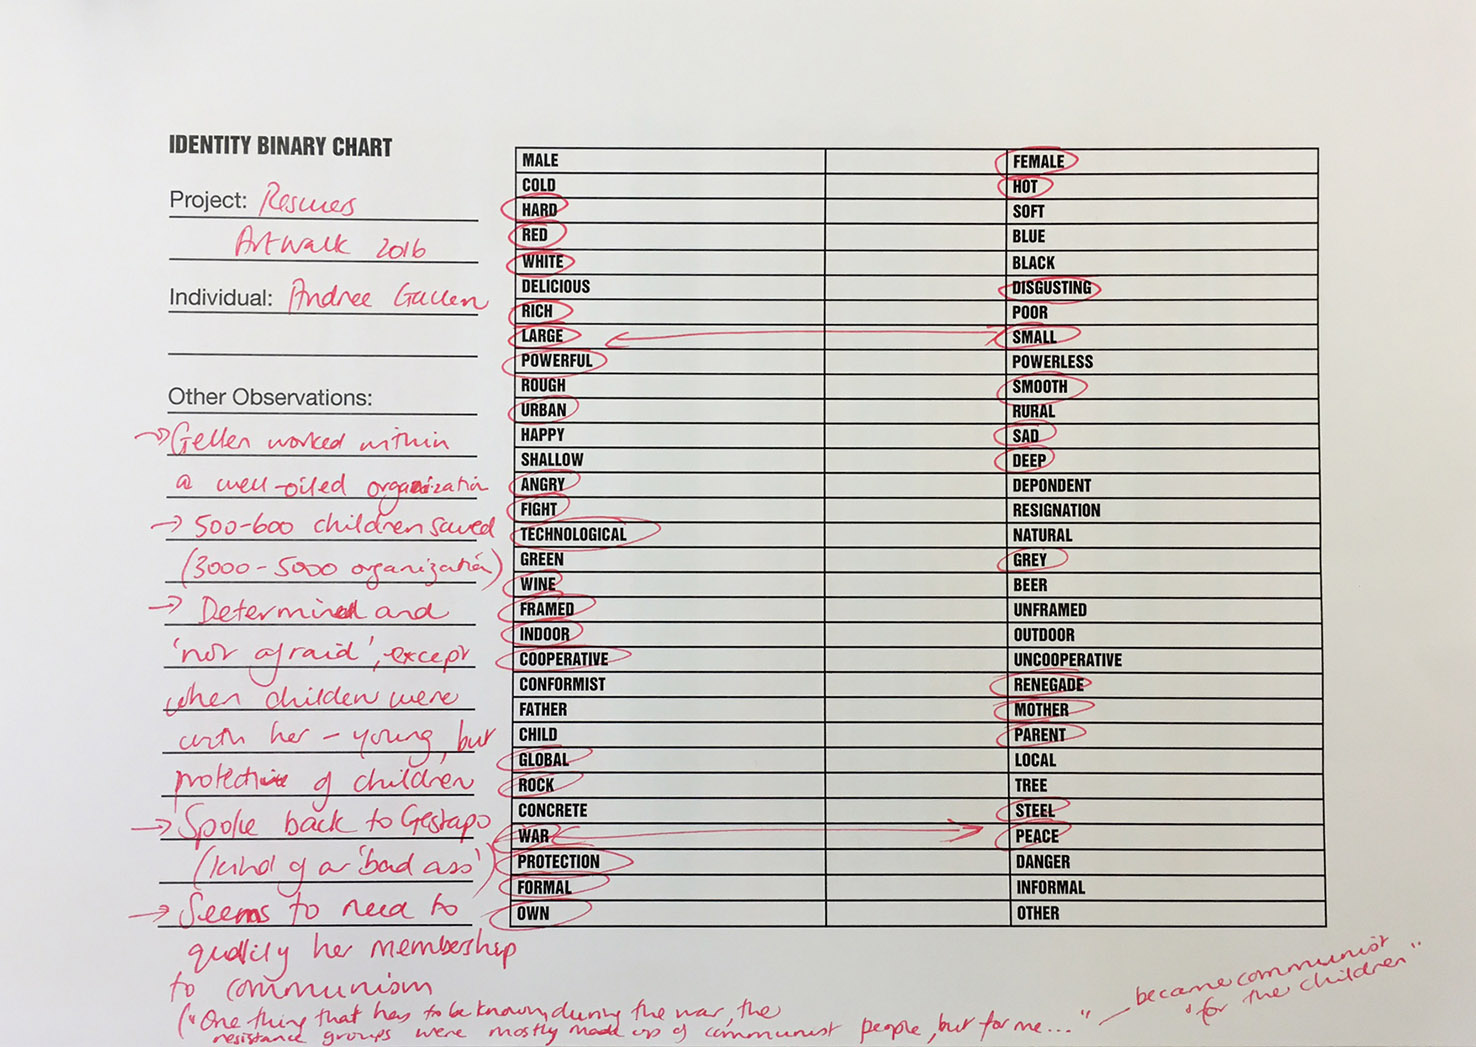 IDENTITY BINARY CHART
Project: Rescuers
Artwalk 2016
Individual: Andree Gellen
Other Observations:
→ Gellen worked within
a well-oiled organization
→ 500-600 children saved
(3000-5000 organization)
→ Determined and
'not afraid', except
when children were
with her - young, but
protective of children
→ Spoke back to Gestapo
(kind of a 'bad ass')
→ Seems to need to
qualify her membership
to communism
("One thing that has to be known, during the war, the
resistance groups were mostly made up of communist people, but for me..." — became communist
"for the children"
MALE FEMALE
COLD HOT
HARD SOFT
RED BLUE
WHITE BLACK
DELICIOUS DISGUSTING
RICH POOR
LARGE SMALL
POWERFUL POWERLESS
ROUGH SMOOTH
URBAN RURAL
HAPPY SAD
SHALLOW DEEP
ANGRY DEPONDENT
FIGHT RESIGNATION
TECHNOLOGICAL NATURAL
GREEN GREY
WINE BEER
FRAMED UNFRAMED
INDOOR OUTDOOR
COOPERATIVE UNCOOPERATIVE
CONFORMIST RENEGADE
FATHER MOTHER
CHILD PARENT
GLOBAL LOCAL
ROCK TREE
CONCRETE STEEL
WAR PEACE
PROTECTION DANGER
FORMAL INFORMAL
OWN OTHER